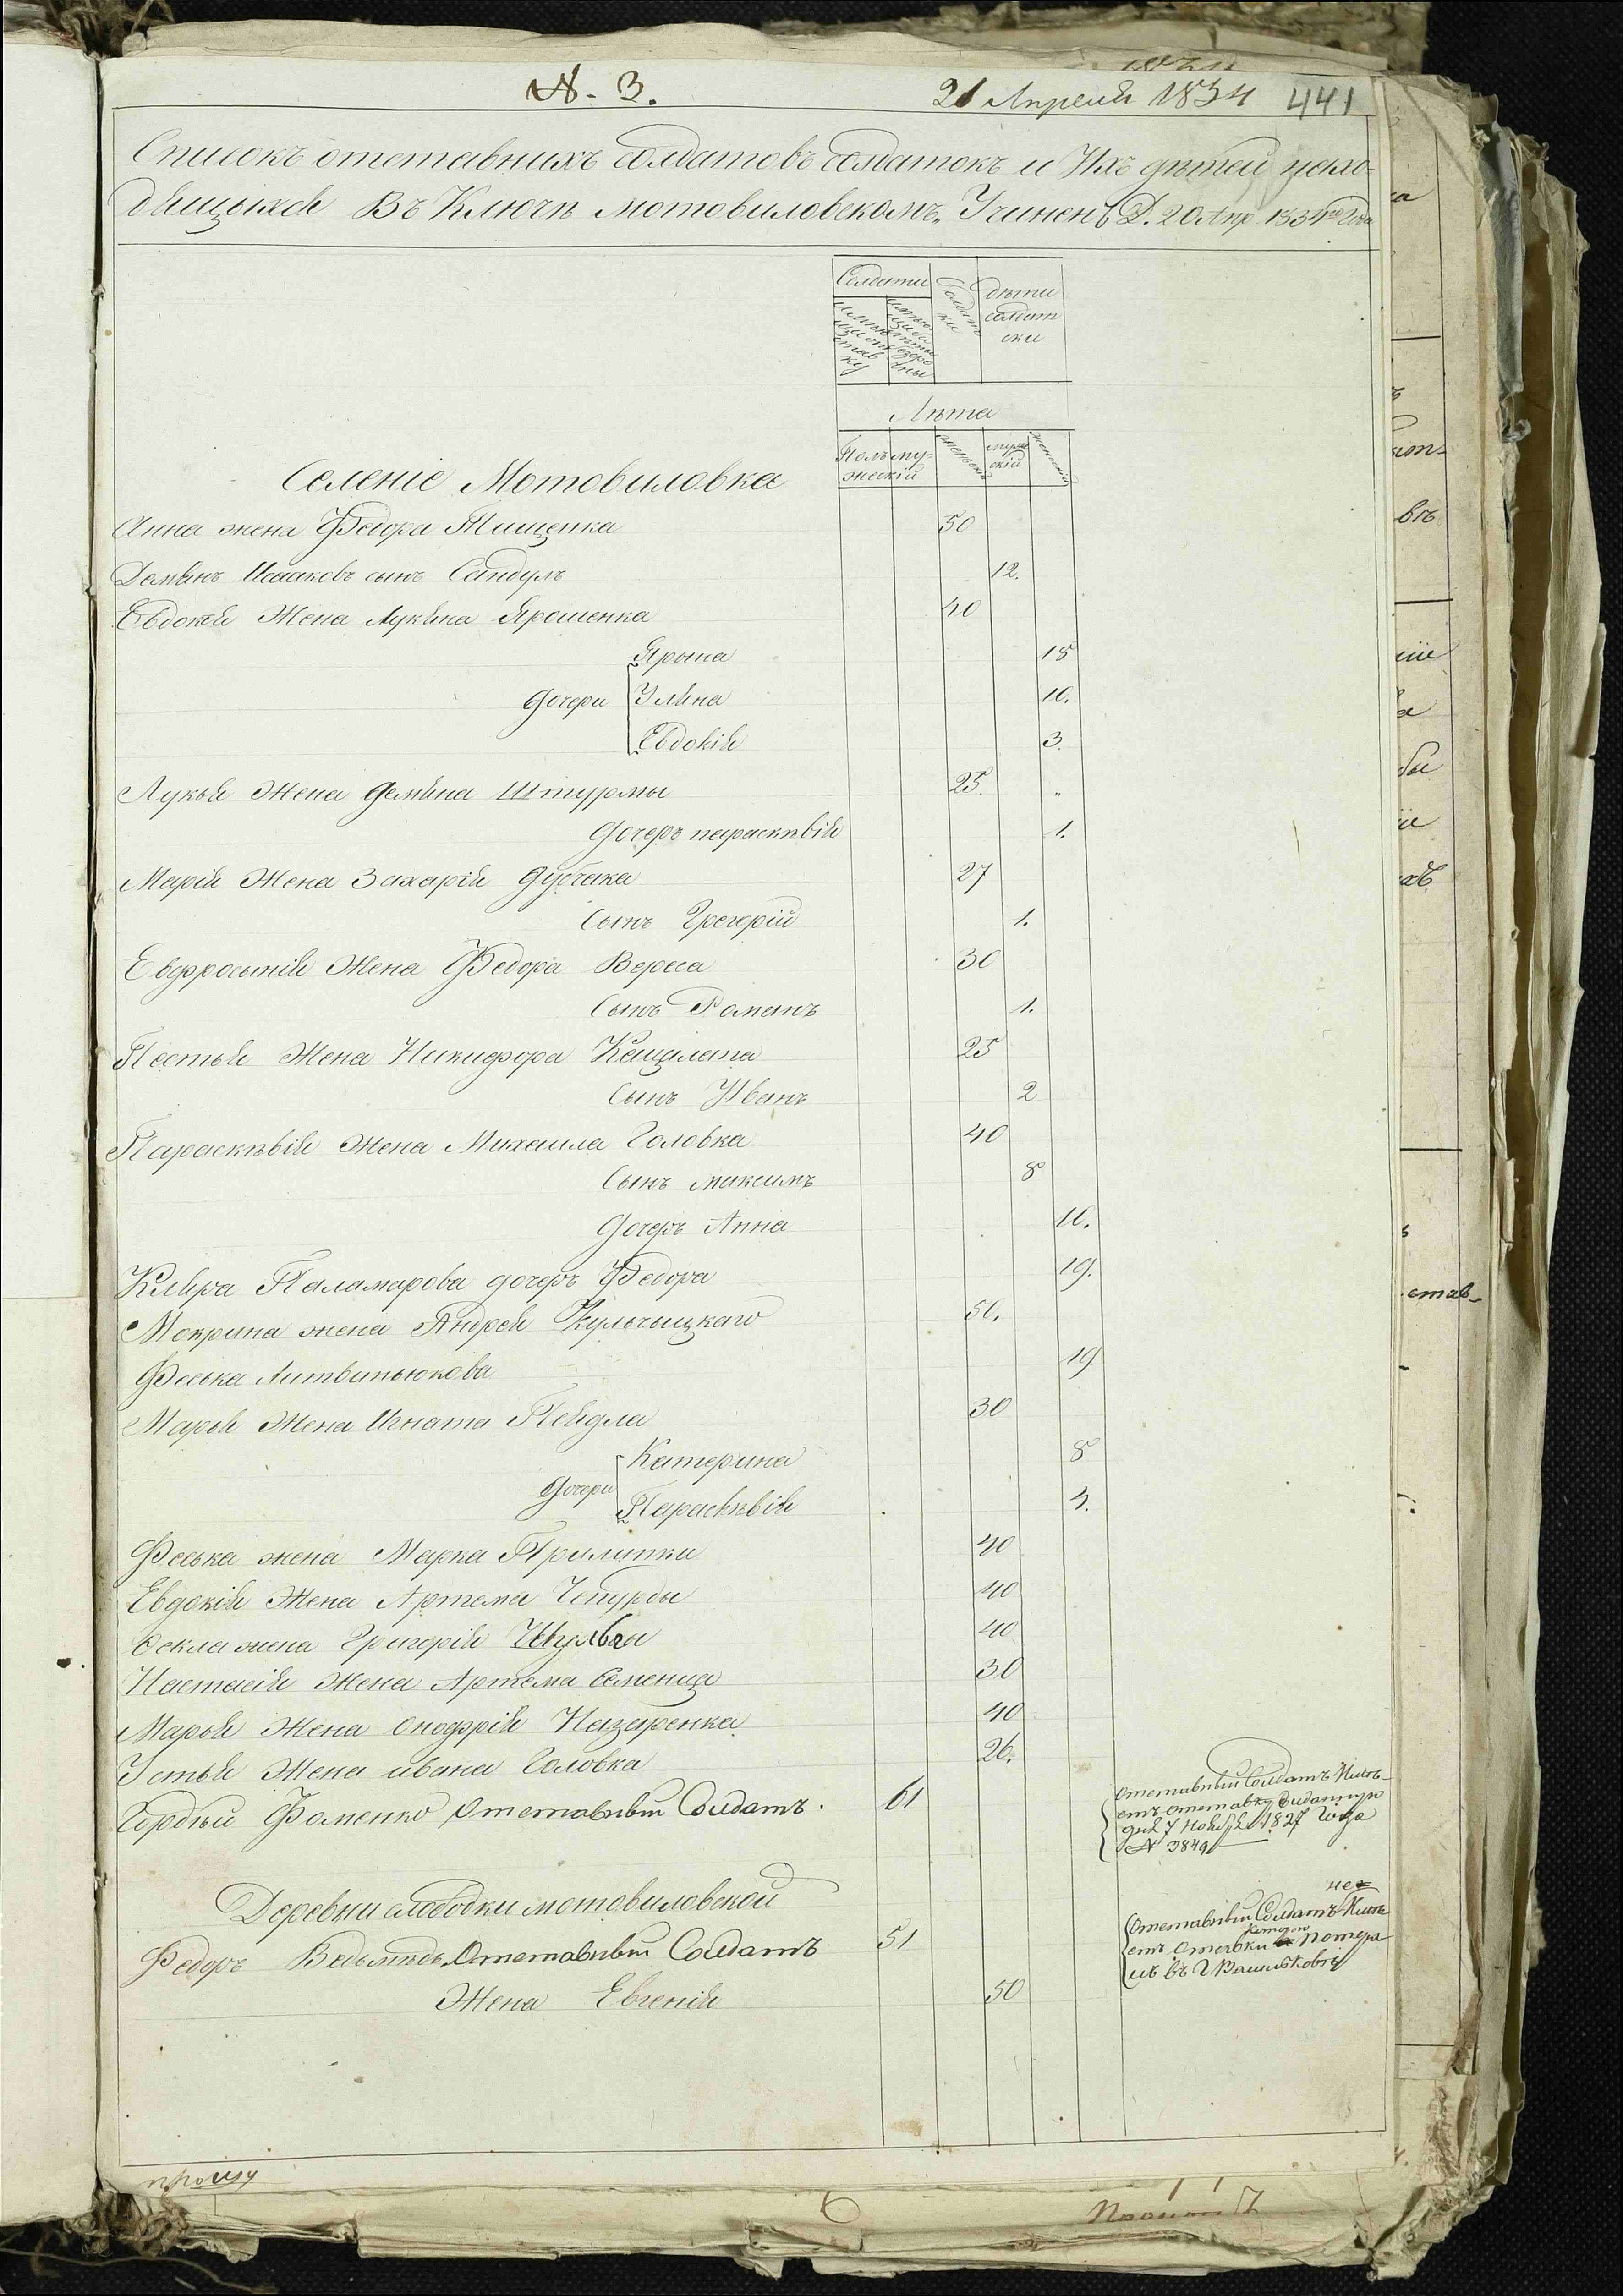 №. 3.
21 Апреля 1834 441
Списокъ отставнихъ солдатовъ солдатокъ и Ихъ дѣтей нахо-
дящыхся Въ Ключѣ мотовиловскомъ. Учиненъ Д. 20 Апр 1834го Года
Солдати
Солдат
ки
дѣти
солдат
ски
Лѣта
Полъ му-
жескій
женскій
муже
скій
женскій
Селеніе Мотовиловка
Анна жена Федора Тищенка 50
Демянъ Исааковъ сынъ Сандулъ 12.
Евдокея Жена Лукяна Ярошенка 40
Ярына 18
дочери Уляна 10.
Евдокія 3.
Лукья Жена демяна Штурмы 25. "
дочеръ парасквѣвія 1.
Марія Жена Захарія дубчака 27
Сынъ Грегорій 1.
Евфросынія Жена Федора Вереса 30
Сынъ Романъ 1.
Пестья Жена Никифора Кащалапа 25
Сынъ Иванъ 2
Парасквѣвія Жена Михаила Головка 40
Сынъ максимъ 8
дочеръ Анна 10.
Кляра Паламарова дочеръ Федора 19.
Мокрина жена Андрея Кульчыцкаго 50.
Феська Литвиньюкова 19
Марья Жена Игната Пейдла 30
дочери Катерина 8
Парасквѣвія 4.
Феська жена Марка Прилипки 40
Евдокія Жена Артема Чепурды 40
Фекла жена Григорія Шулвы 40
Настасія Жена Артема Семенца 30
Марья Жена Онофрія Назаренка 40
Устья Жена ивана Головка 26.
Гордѣй Фоменко Отставный Солдатъ. 61
Отставный Солдатъ Имѣ-
етъ отставку виданную
дня 7 Ноября 1827 Года
№ 3849
Деревни слободки мотовиловской
не
Федоръ Ведьмѣдь Отставный Солдатъ 51
Отставный Солдатъ Имѣ
етъ Отставки которую потера
лъ въ Г Васильковѣ
Жена Евгенія 50
прошу